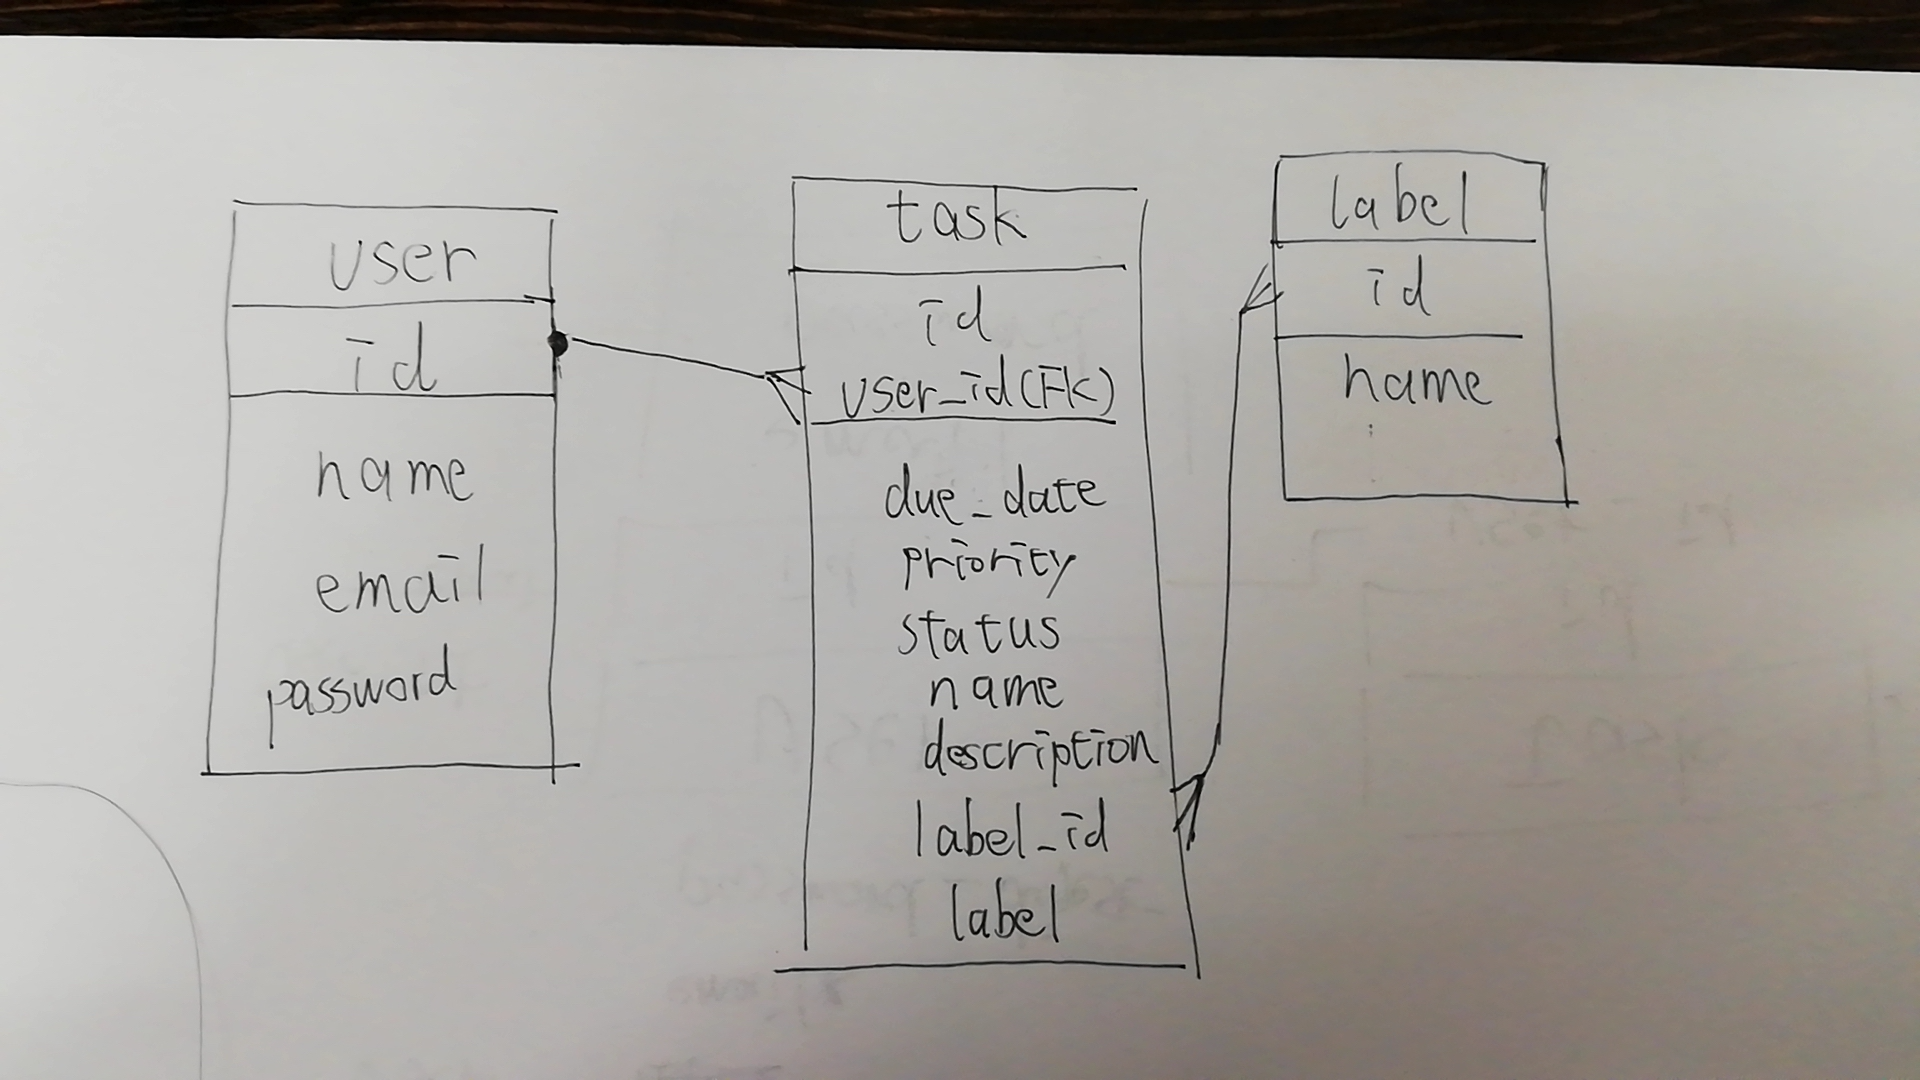 user
id
name
email
password
task
id
user_id(FK)
due_date
priority
status
name
description
label_id
label
label
id
name